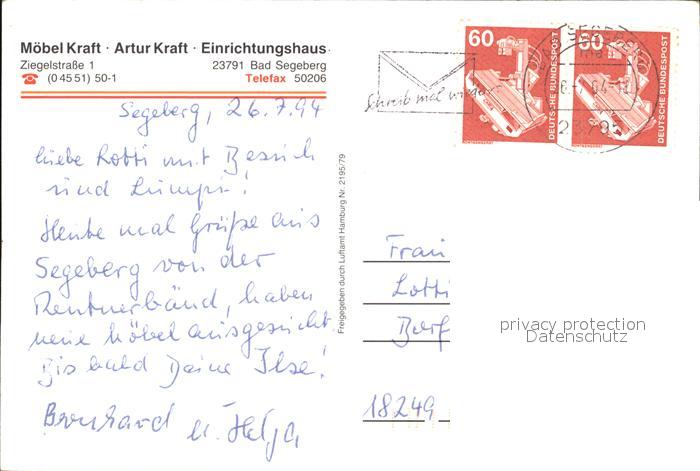 Möbel Kraft · Artur Kraft · Einrichtungshaus
Ziegelstraße 1 23791 Bad Segeberg
☎ (0 45 51) 50-1 Telefax 50206
Segeberg, 26.7.94
Liebe Lotti mit Besuch
und Lumpi!
Heute mal Grüße aus
Segeberg von der
Rentnerbänd, haben
neue Möbel ausgesucht.
Bis bald Deine Ilse!
Bernhard u. Helga
Freigegeben durch Luftamt Hamburg Nr. 2195/79
Schreib mal wieder
60
DEUTSCHE BUNDESPOST
RÖNTGENGERÄT
60
DEUTSCHE BUNDESPOST
RÖNTGENGERÄT
Frau
Lotti
18249
privacy protection
Datenschutz